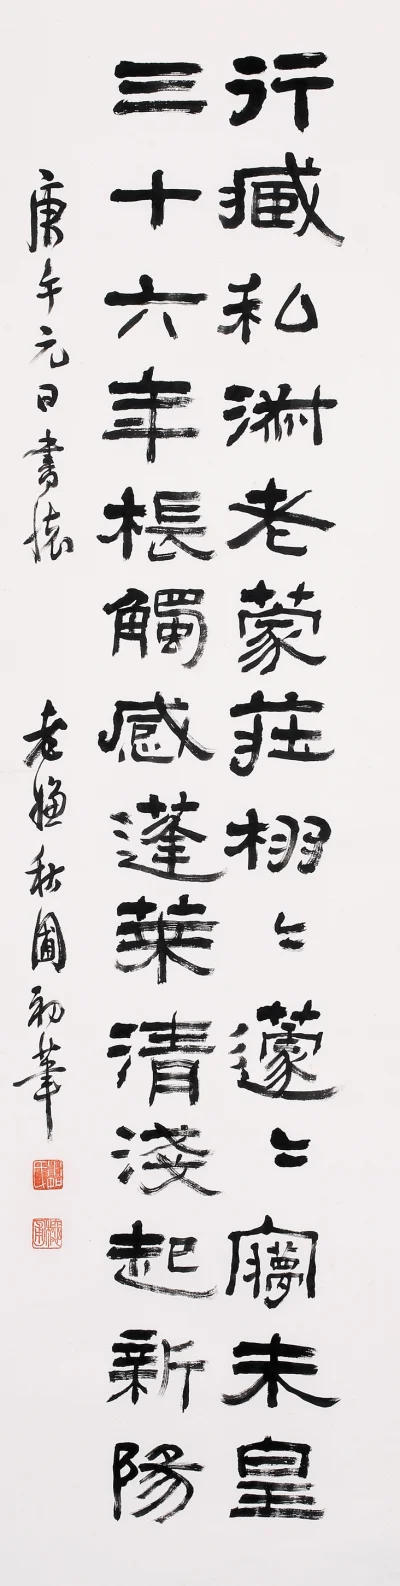 行臧私淑老蒙莊栩〻蘧〻㝱未皇
三十六年棖觸感蓬萊清淺起新陽
庚午元日書懷
老嫌秋圃初筆